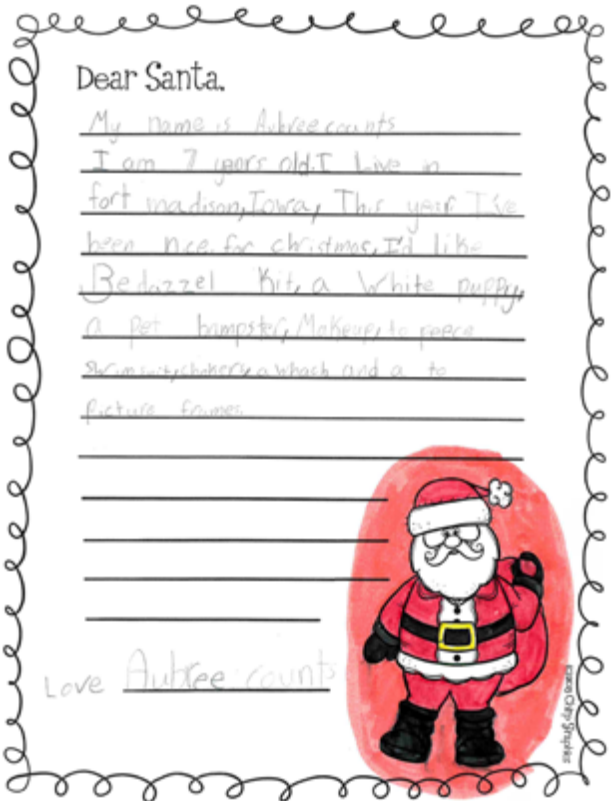 Dear Santa,
My name is Aubree counts
I am 7 years old. I Live in
fort madison, Iowa, This year I've
been nice. for christmas, I'd like
Bedazzel Kit, a White puppy,
a pet hampster, Makeup, to peece
swimsuit, a whach and a to
picture frames
Love Aubree counts